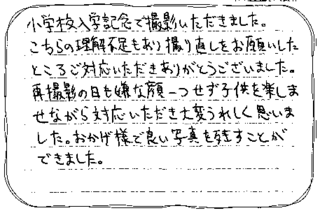 小学校入学記念で撮影いただきました。
こちらの理解不足もあり撮り直しをお願いした
ところご対応いただきありがとうございました。
再撮影の日も嫌な顔一つせず子供を楽しま
せながら対応いただき大変うれしく思いま
した。おかげ様で良い写真を残すことが
できました。